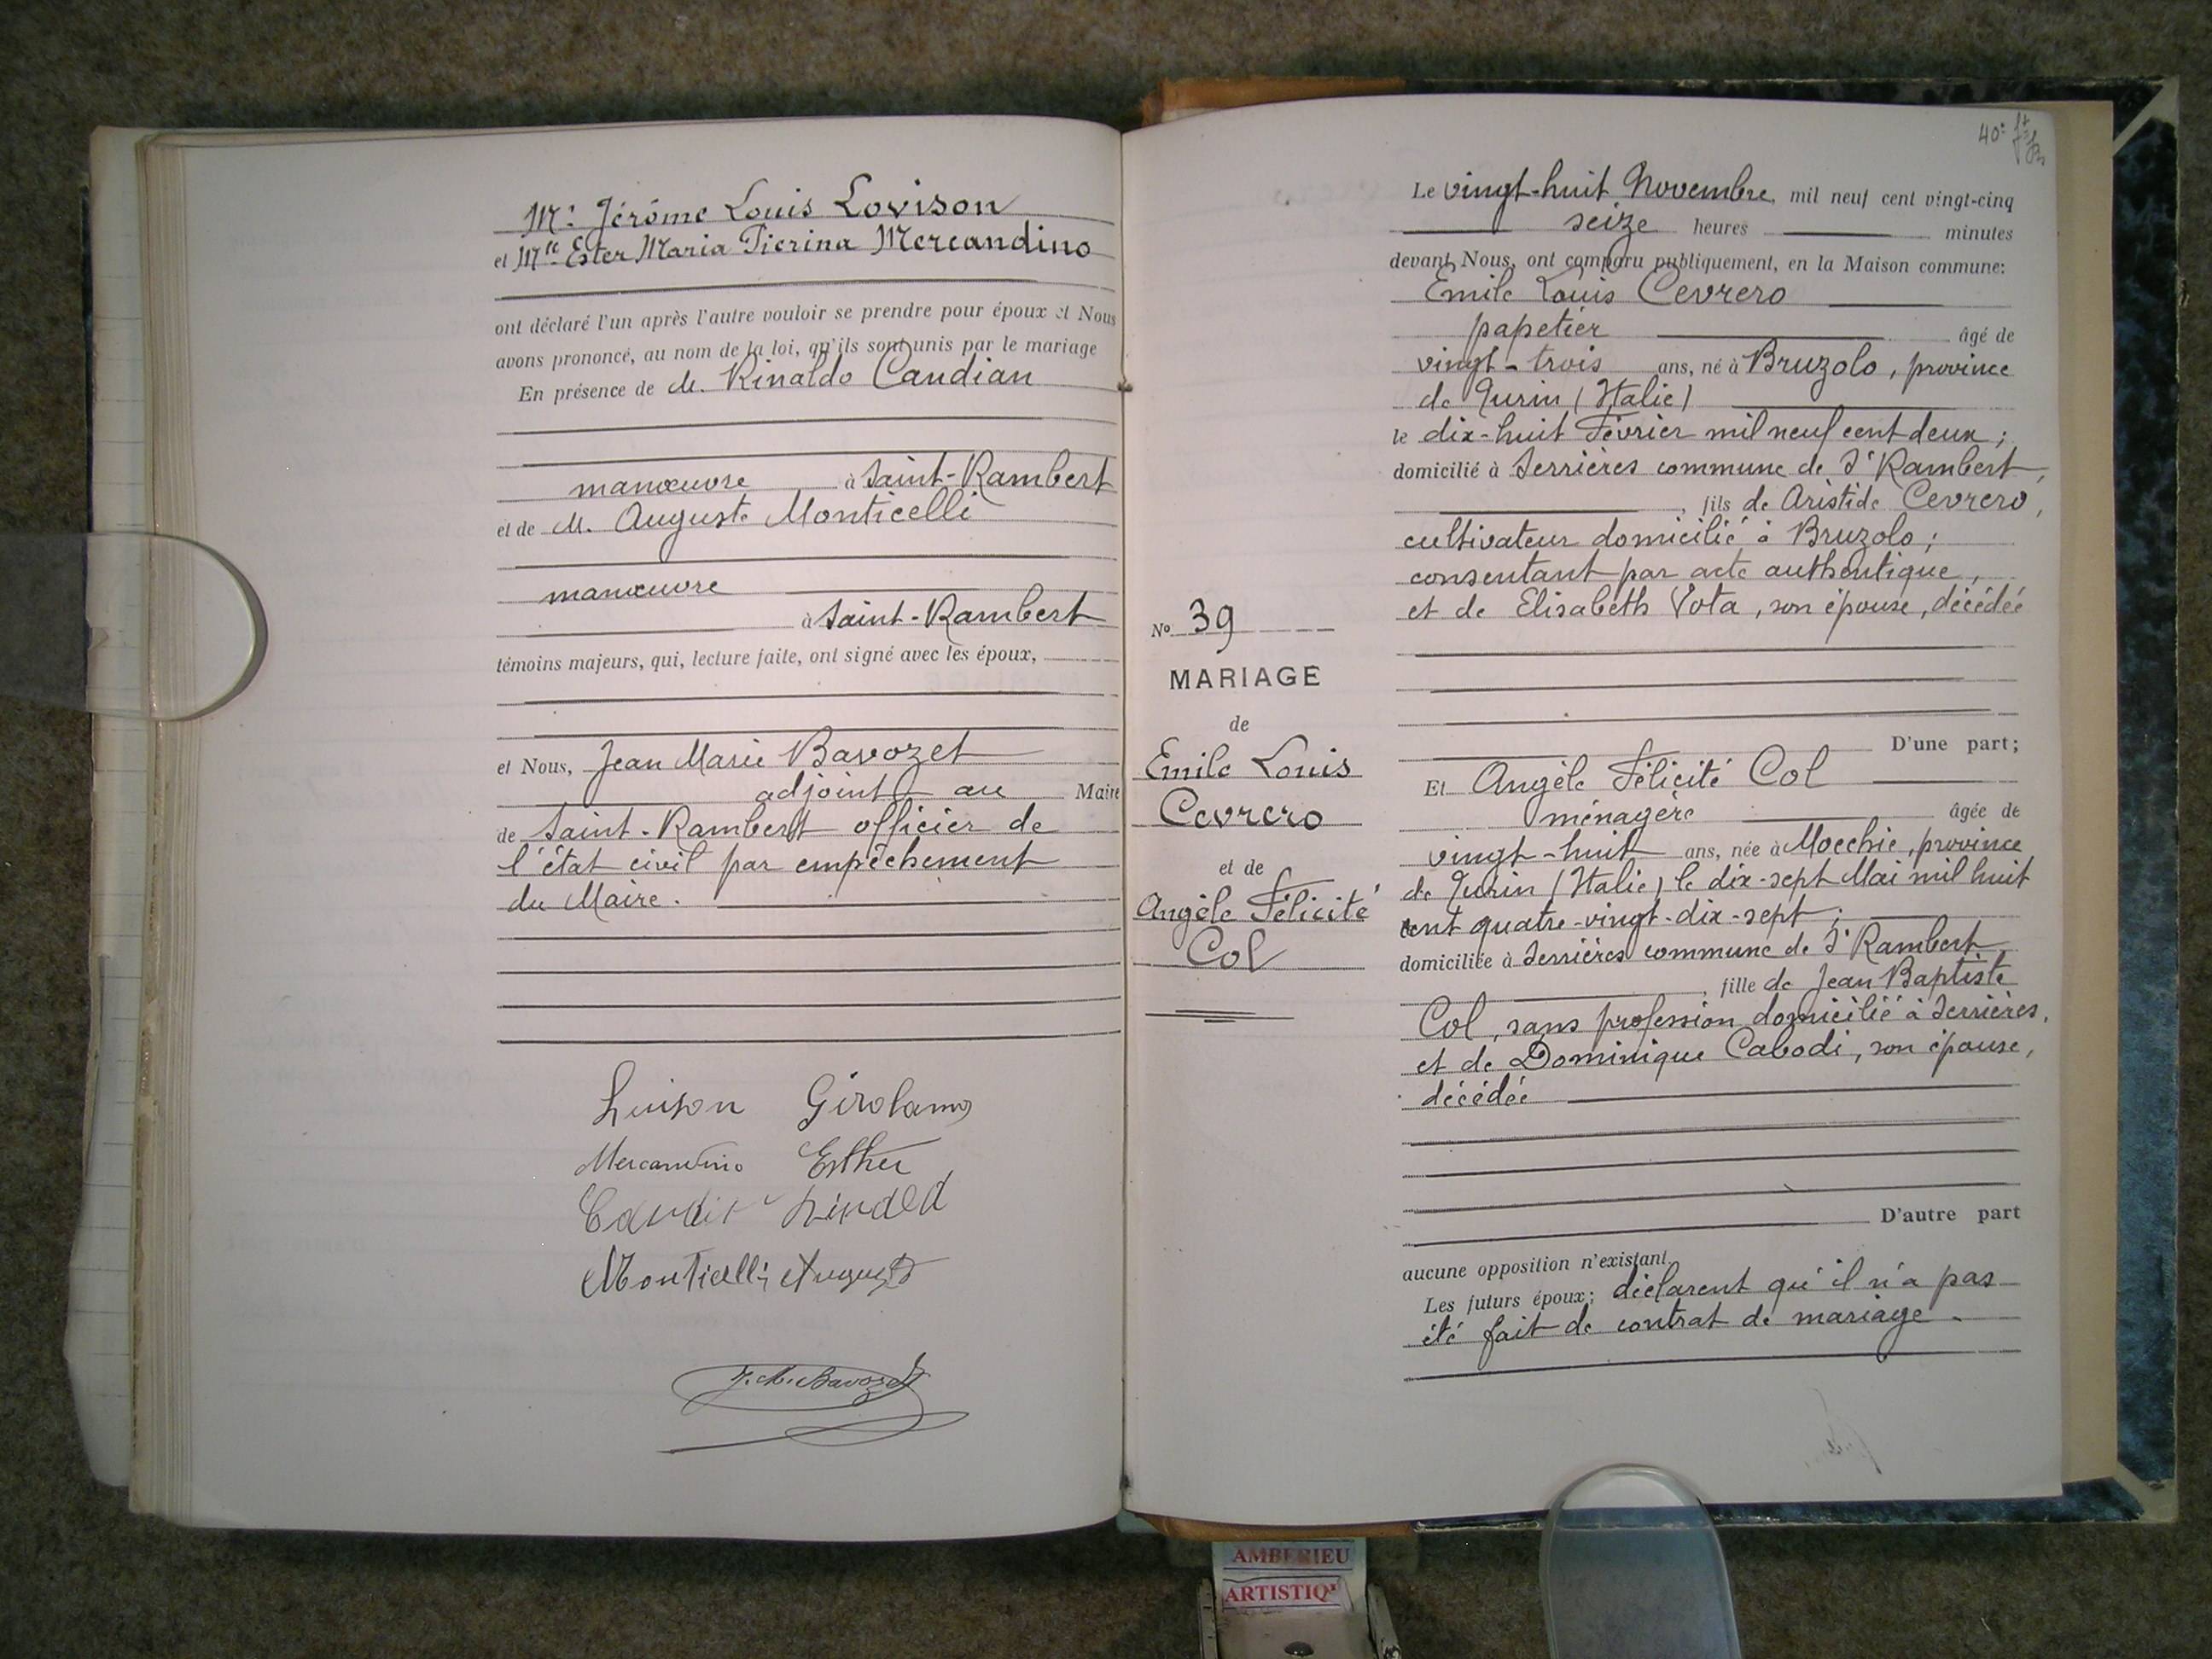 Mr Jérôme Louis Lovison
et Mlle Ester Maria Pierina Mercandino
ont déclaré l'un après l'autre vouloir se prendre pour époux et Nous
avons prononcé, au nom de la loi, qu'ils sont unis par le mariage
En présence de M. Rinaldo Candian
manœuvre à Saint-Rambert
et de M. Auguste Monticelli
manœuvre
à Saint-Rambert
témoins majeurs, qui, lecture faite, ont signé avec les époux,
et Nous, Jean Marie Bavozet
adjoint au Maire
de Saint-Rambert officier de
l'état civil par empêchement
du Maire.
Girolamo
Mercandino Esther
Monticelli August
J. M. Bavozet
40e
Le vingt-huit Novembre mil neuf cent vingt-cinq
seize heures minutes
devant Nous, ont comparu publiquement, en la Maison commune:
Emile Louis Cevrero
papetier âgé de
vingt-trois ans, né à Bruzolo, province
de Turin (Italie)
le dix-huit Février mil neuf cent deux;
domicilié à Serrières commune de St Rambert,
fils de Aristide Cevrero,
cultivateur domicilié à Bruzolo;
consentant par acte authentique,
et de Elisabeth Vota, son épouse, décédée
D'une part;
No 39
MARIAGE
de
Emile Louis
Cevrero
et de
Angèle Félicité
Col
Et Angèle Félicité Col
ménagère âgée de
vingt-huit ans, née à Mocchie, province
de Turin (Italie) le dix-sept Mai mil huit
cent quatre-vingt-dix-sept;
domiciliée à Serrières commune de St Rambert,
fille de Jean Baptiste
Col, sans profession domicilié à Serrières,
et de Dominique Cabodi, son épouse,
décédée
D'autre part
aucune opposition n'existant.
Les futurs époux; déclarent qu'il n'a pas
été fait de contrat de mariage.
AMBERIEU
ARTISTIQ